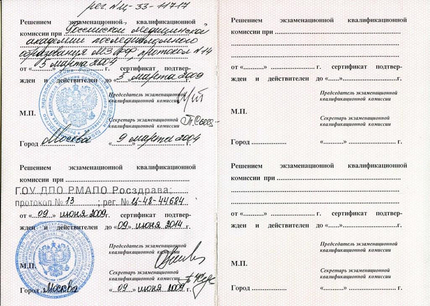 рег. № Ц-33-11717
Решением экзаменационной квалификационной
комиссии при Российской медицинской
академии последипломного
образования МЗ РФ, протокол №14
от « 5 марта 2004 г. сертификат подтвер-
жден и действителен до « 5 » марта 2009
Председатель экзаменационной
квалификационной комиссии
М.П.
Секретарь экзаменационной
квалификационной комиссии
Город Москва « 9 марта 2004
Решением экзаменационной квалификационной
комиссии при
ГОУ ДПО РМАПО Росздрава;
протокол № 13 ; рег. № Ц-48-44684
от « 09 » июня 2009г. сертификат подтвер-
жден и действителен до « 09 » июня 2014 г.
Председатель экзаменационной
квалификационной комиссии
М.П.
Секретарь экзаменационной
квалификационной комиссии
Город Москва « 09 » июня 2009г.
Решением экзаменационной квалификационной
комиссии при
от «......» г. сертификат подтвер-
жден и действителен до «......»
Председатель экзаменационной
квалификационной комиссии
М.П.
Секретарь экзаменационной
квалификационной комиссии
Город «......» г.
Решением экзаменационной квалификационной
комиссии при
от «......» г. сертификат подтвер-
жден и действителен до «......» г.
Председатель экзаменационной
квалификационной комиссии
М.П.
Секретарь экзаменационной
квалификационной комиссии
Город «......» г.